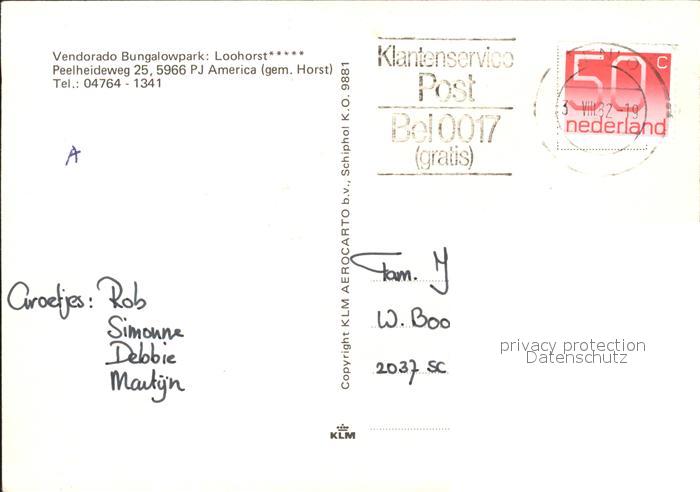 Vendorado Bungalowpark: Loohorst*****
Peelheideweg 25, 5966 PJ America (gem. Horst)
Tel.: 04764 - 1341
A
Groetjes: Rob
Simonne
Debbie
Martijn
Copyright KLM AEROCARTO b.v., Schiphol K.O. 9881
KLM
Klantenservice
Post
Bel 0017
(gratis)
50 C
3 VIII 82 -19
nederland
Fam. IJ
W. Boo
2037 SC
privacy protection
Datenschutz